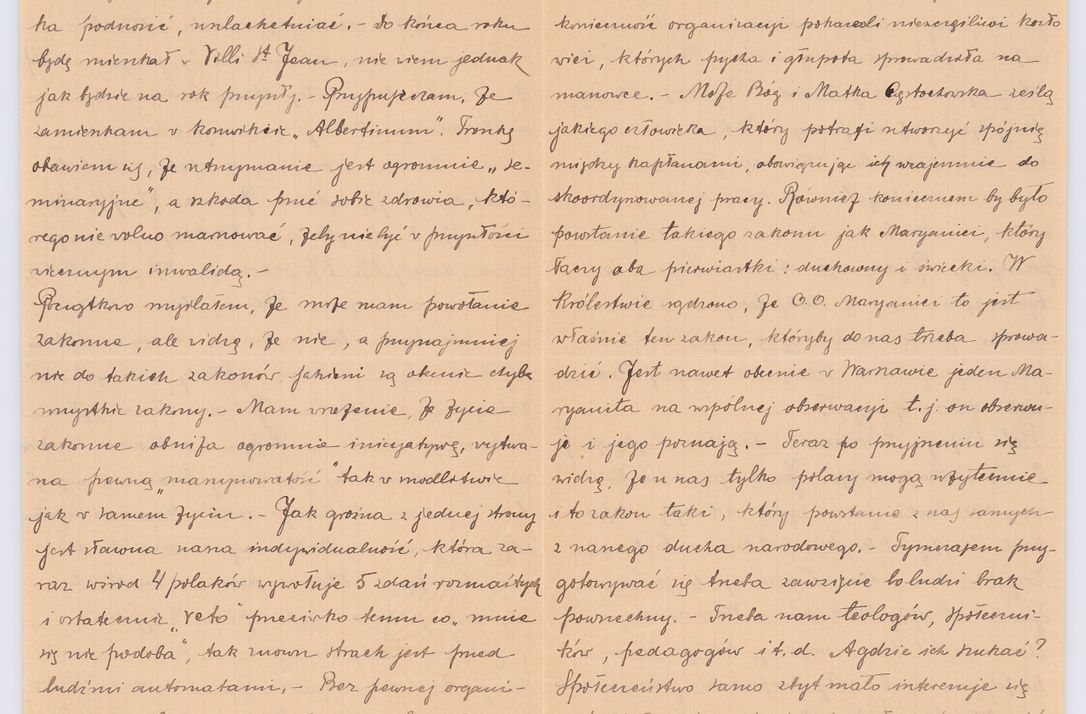 ka podnosić, uszlachetniać. – Do końca roku
będę mieszkał w Villi St Jean, nie wiem jednak
jak będzie na rok przyszły. – Przypuszczam, że
zamieszkam w konwikcie „Albertinum”. Trochę
obawiam się, że utrzymanie jest ogromnie „se-
minaryjne”, a szkoda psuć sobie zdrowia, któ-
rego nie wolno marnować, żeby nie być w przyszłości
wiecznym inwalidą. –
Początkowo myślałem, że może mam powołanie
zakonne, ale widzę, że nie, a przynajmniej
nie do takich zakonów jakiemi są obecnie chyba
wszystkie zakony. – Mam wrażenie, że życie
zakonne obniża ogromnie inicjatywę, wytwa-
na pewną „maszynowatość” tak w modlitwie
jak w samem życiu. – Jak groźna z jednej strony
jest sławna nasza indywidualność, która za-
raz wśród 4 polaków wywołuje 5 zdań rozmaitych
i ostatecznie „veto” przeciwko temu co „mnie
się nie podoba”, tak znowu strach jest przed
ludźmi automatami. – Bez pewnej organi-
konieczność organizacji pokazali nieszczęśliwi kozło
wici, których pycha i głupota sprowadziła na
manowce. – Może Bóg i Matka Częstochowska ześlą
jakiego człowieka, który potrafi utworzyć spójnię
między kapłanami, obowiązując ich wzajemnie do
skoordynowanej pracy. Również koniecznem by było
powstanie takiego zakonu jak Maryanici, który
łączy oba pierwiastki: duchowny i świecki. W
Królestwie sądzono, że O.O. Maryanici to jest
właśnie ten zakon, któryby do nas trzeba sprowa-
dzić. Jest nawet obecnie w Warszawie jeden Ma-
ryanita na wspólnej obserwacji t.j. on obserwu-
je i jego poznają. – Teraz po przyjrzeniu się
widzę, że u nas tylko polacy mogą użytecznie
i to zakon taki, który powstanie z nas samych
z naszego ducha narodowego. – Tymczasem przy-
gotowywać się trzeba zawzięcie bo ludzi brak
powszechny. – Trzeba nam teologów, społeczni-
ków, pedagogów i t.d. A gdzie ich szukać?
Społeczeństwo samo zbyt mało interesuje się